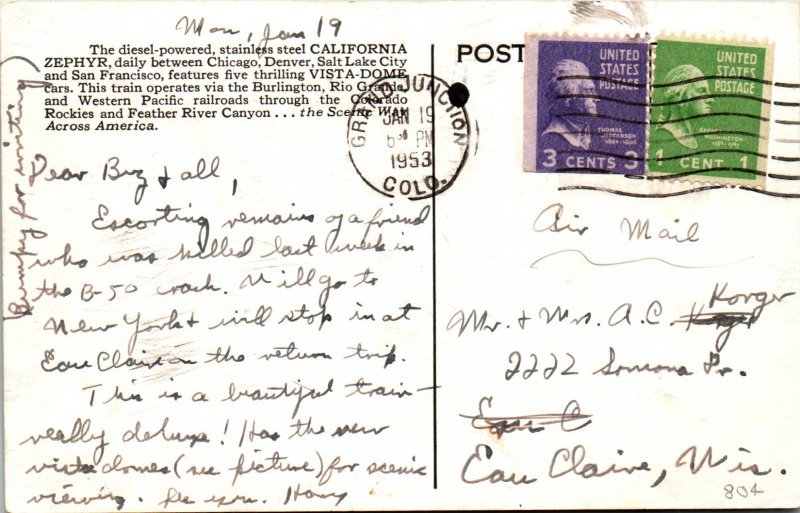 Mon, Jan 19
The diesel-powered, stainless steel CALIFORNIA
ZEPHYR, daily between Chicago, Denver, Salt Lake City
and San Francisco, features five thrilling VISTA-DOME
cars. This train operates via the Burlington, Rio Grande,
and Western Pacific railroads through the Colorado
Rockies and Feather River Canyon . . . the Scenic Way
Across America.
Dear Buz & all,
Escorting remains of a friend
who was killed last week in
the B-50 crash. Will go to
New York & will stop in at
Eau Claire on the return trip.
This is a beautiful train—
really deluxe! Has the new
vista domes (see picture) for scenic
viewing. See you. Harry
(Bumpy for writing)
POST
GRAND JUNCTION
JAN 19
6 PM
1953
COLO.
UNITED
STATES
POSTAGE
THOMAS
JEFFERSON
1801-1809
3 CENTS 3
UNITED
STATES
POSTAGE
GEORGE
WASHINGTON
1789-1797
1 CENT 1
Air Mail
Korger
Mr. & Mrs. A.C.
2222 Sonoma Dr.
Eau C
Eau Claire, Wis.
804